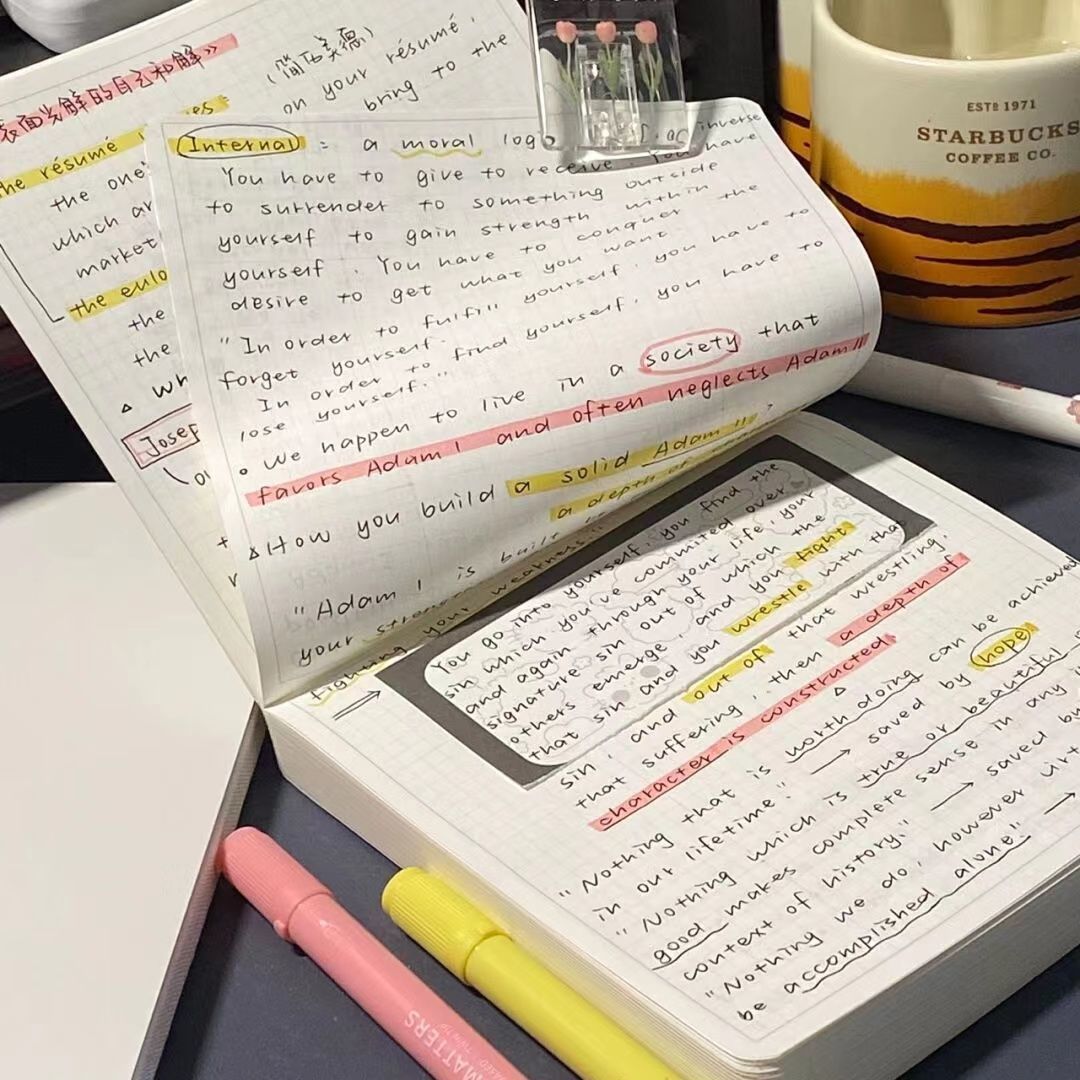 表面光解的自己和解》
(简历美德)
on your résumé,
bring to the
the résumé
the one
which ar
market
the eulo
the
the
△ wh
Josep
Internal = a moral log inverse
You have to give to receive. You have
to surrender to something outside
yourself to gain strength within
yourself. You have to conquer the
desire to get what you want.
"In order to fulfill yourself, you have to
forget yourself.
In order to find yourself, you have to
lose yourself."
• We happen to live in a society that
favors Adam I and often neglects Adam II
△ How you build a solid Adam II ?
a depth of
"Adam I is built
your
fighting your weakness."
⇒
You go into yourself, you find the
sin which you've commited over
and again through your life, your
signature sin out of which the
others emerge, and you fight
that sin and you wrestle with that
sin, and out of that wrestling,
that suffering, then a depth of
character is constructed.
"Nothing that is worth doing can be achieved
in our lifetime." → saved by hope
"Nothing which is true or beautiful
good makes complete sense in any
context of history." → saved by
"Nothing we do, however virt
be accomplished alone" →
ESTD 1971
STARBUCKS
COFFEE CO.
MATTERS